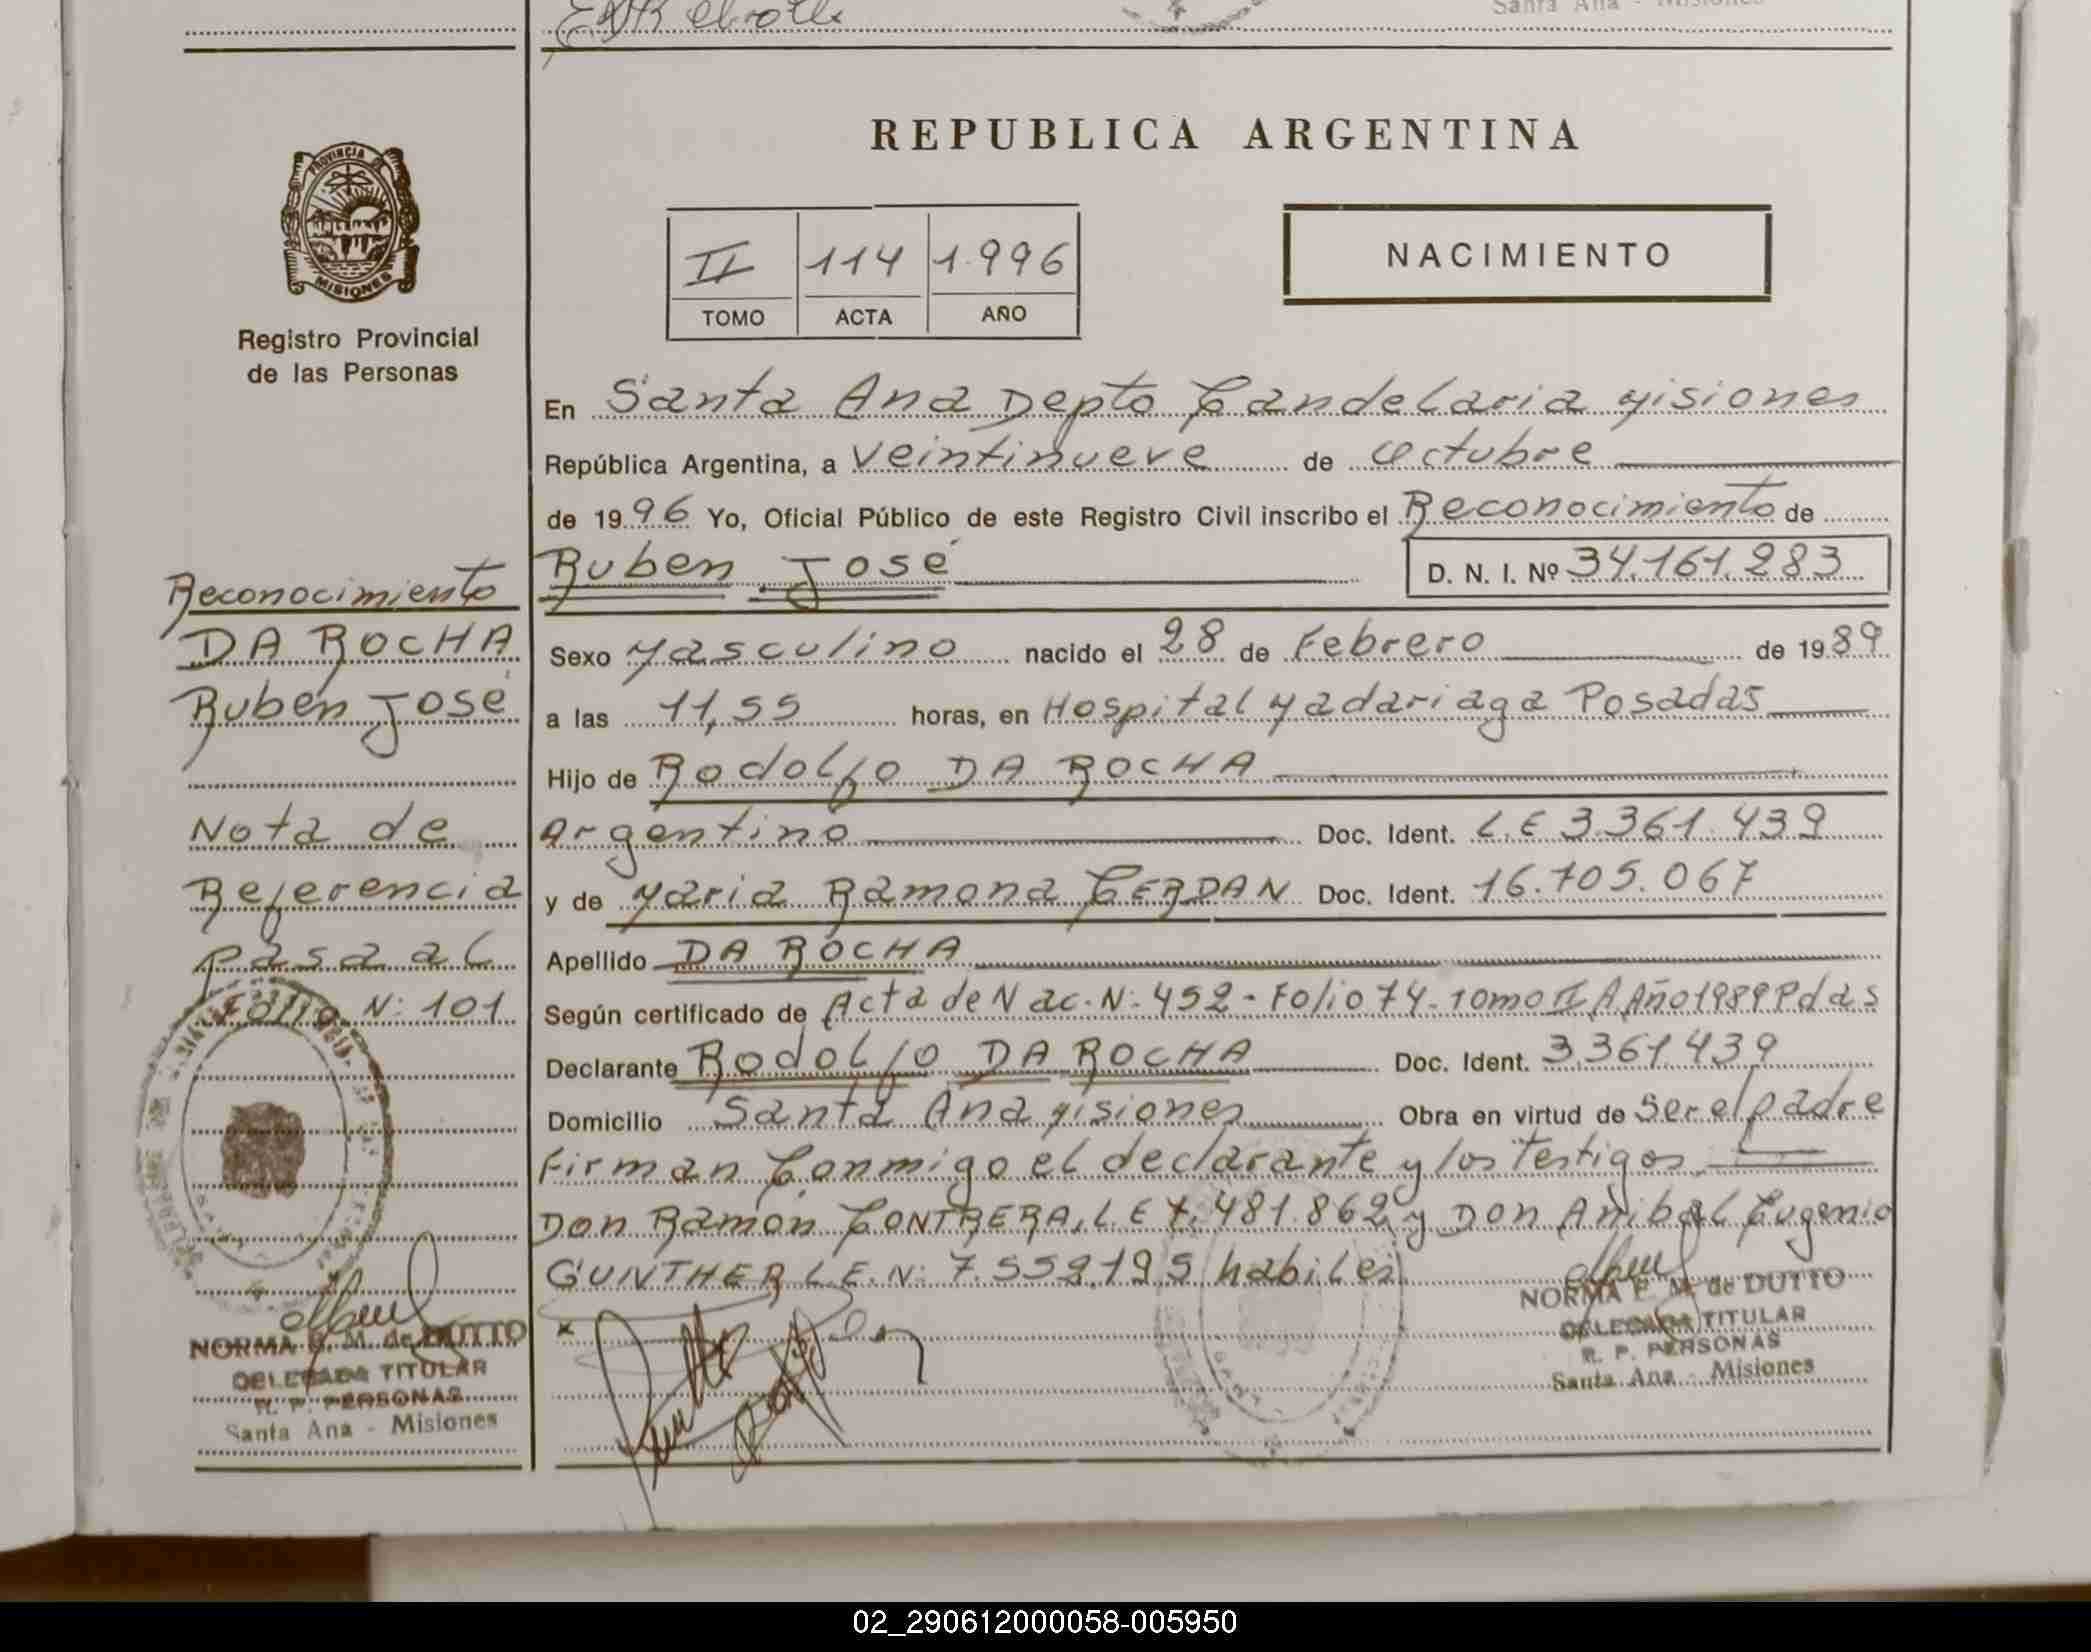 Santa Ana - Misiones
PROVINCIA DE
MISIONES
Registro Provincial
de las Personas
REPUBLICA ARGENTINA
II 114 1.996
TOMO ACTA AÑO
NACIMIENTO
En Santa Ana Depto Candelaria Misiones
República Argentina, a veintinueve de octubre
de 1996 Yo, Oficial Público de este Registro Civil inscribo el Reconocimiento de
Ruben José D. N. I. Nº 34.161.283
Reconocimiento
DA ROCHA
Ruben José
Nota de
Referencia
pasa al
Folio N: 101
Sexo Masculino nacido el 28 de Febrero de 1989
a las 11,55 horas, en Hospital Madariaga Posadas
Hijo de Rodolfo DA ROCHA
Argentino Doc. Ident. L.E 3.361.439
y de Maria Ramona CERDAN Doc. Ident. 16.705.067
Apellido DA ROCHA
Según certificado de Acta de Nac. N: 452 - Folio 74 - Tomo II A. Año 1989 Pdas
Declarante Rodolfo DA ROCHA Doc. Ident. 3.361.439
Domicilio Santa Ana Misiones Obra en virtud de Ser el padre
Firman Conmigo el declarante y los Testigos
Don Ramón CONTRERA, L.E 7.481.862 y Don Anibal Eugenio
GUNTHER L.E. N: 7.559.195 habiles
NORMA E. M. de DUTTO
DELEGADA TITULAR
R. P. PERSONAS
Santa Ana - Misiones
NORMA E. M. de DUTTO
DELEGADA TITULAR
R. P. PERSONAS
Santa Ana - Misiones
02_290612000058-005950